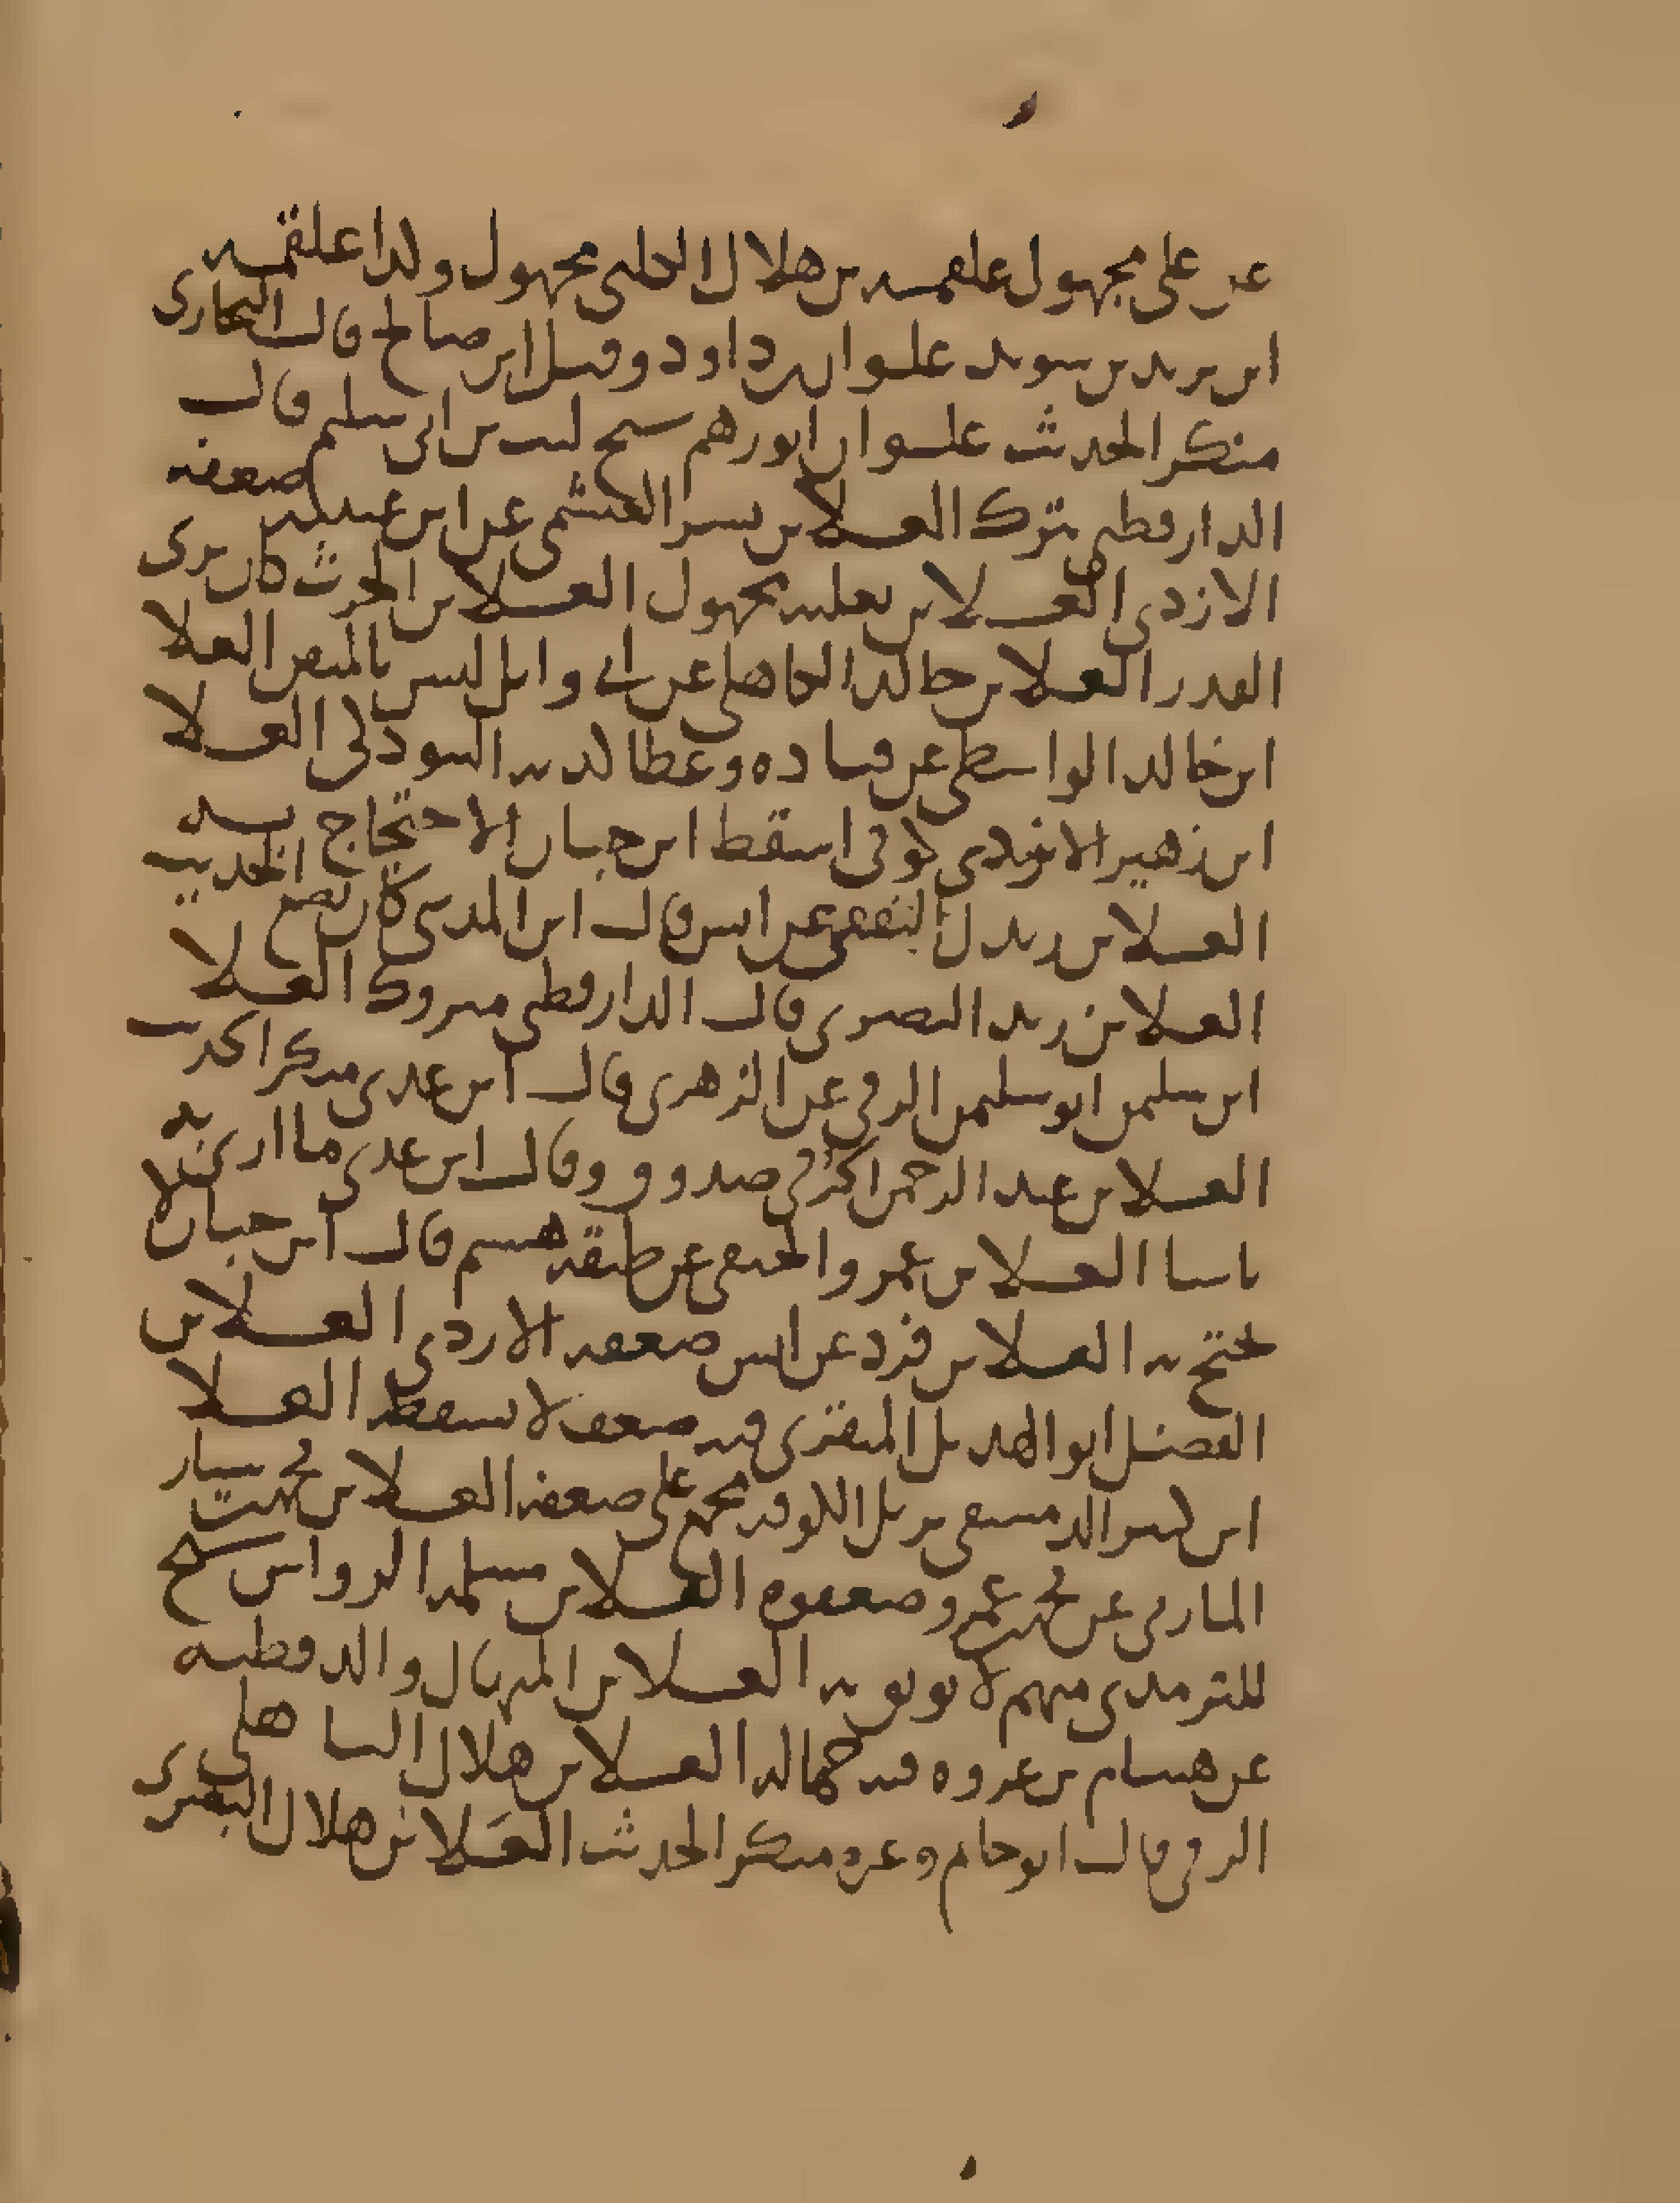 عن على مجهول علقمه بن هلال الكلبى مجهول وكذا علقمه
ابن يزيد بن سويد علوان بن داود وقيل ابن صالح قال البخارى
منكر الحديث علوان ابو رهم شيخ لليث بن ابى سليم قال
الدارقطنى يترك العلا بن بشر العبشمى عن ابن عيينه ضعفه
الازدى العلا بن ثعلبه مجهول العلا بن الحرث كان يرى
القدر العلا بن خالد الكاهلى عن ابى وائل ليس بالمتقن العلا
ابن خالد الواسطى عن قتاده وعطا كذبه التبوذكى العلا
ابن زهير الازدى كوفى اسقط ابن حبان الاحتجاج به
العلا بن زيدل الثقفى عن انس قال ابن المدينى كان يضع الحديث
العلا بن زيد البصرى قال الدارقطنى متروك العلا
ابن سليمن ابو سليمن الرقى عن الزهرى قال ابن عدى منكر الحديث
العلا بن عبد الرحمن الحرقى صدوق وقال ابن عدى ما ارى به
باسا العلا بن عمرو الحنفى عن طبقة هشيم قال ابن حبان لا
يحتج به العلا بن فرد عن انس ضعفه الازدى العلا بن
الفضل ابو الهذيل المنقرى فيه ضعف لا يسقط العلا
ابن كثير الدمشقى نزيل الكوفه مجمع على ضعفه العلا بن محمد بن سيار
المازنى عن محمد بن عمرو وضعفوه العلا بن مسلمه الرواس شيخ
للترمذى متهم لا يوثق به العلا بن المنهال والد قطبه
عن هشام بن عروه فيه جهاله العلا بن هلال الباهلى
الرقى قال ابو حاتم وغيره منكر الحديث العلا بن هلال البصرى